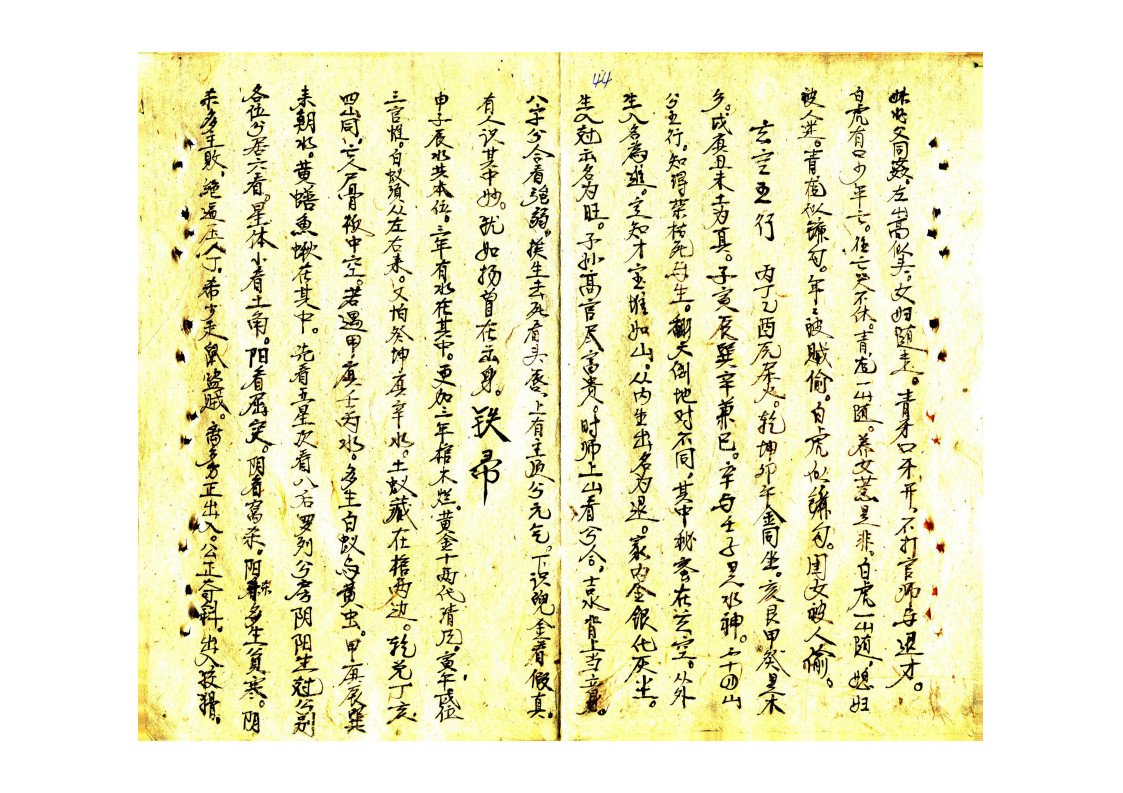 44
妹好父同路。左山高似头。女妇随走。青龙口不开。不打官师与退才。
白虎有口少年亡。位亡哭不休。青龙一山随。养女惹是非。白虎一山随，媳妇
被人迷。青龙似镰勾。年〻被贼偷。白虎似镰勾。闺女被人偷。
玄空五行 丙丁乙酉属火。乾坤卯午金同坐。亥艮甲癸是木
乡。戌庚丑未土为真。子寅辰巽辛兼巳。辛与壬子是水神。二十四山
分五行。知得荣枯死与生。翻天倒地对不同，其中秘密在玄空。从外
生入名为进。定知才宝堆如山。从内生出名为退。家内金银化灰尘。
生入尅示名为旺。子孙高官尽富贵。时师上山看分合，去水背上当立身。
八字分合看强弱。挨生去死看头唇，上有主顶分元乞。下识蜕金看假真。
有人识其中妙。犹如扬曾在出身。铁帚
申子辰水共本位。三年有水在其中。更加三年棺木烂。黄金十两代清风。寅午戌位
三官惟。白蚁须从左右来。又怕癸坤庚辛水。土蚁藏在棺两边。乾兑丁亥
四山同。亡人尸骨板中空。若遇甲庚壬丙水。多生白蚁与黄虫。甲庚辰巽
来朝水。黄鳝鱼鳅在其中。先看五星次看八石罗列分房阴阳生尅公别
各位分居六看。星体小看土角。阳看屈突。阴看窝杀。阳杀多生贫寒。阴
杀多主败，绝逼压人丁，希少走鼠盗贼。斋旁正出入。公正奇斜，出入狡猾。